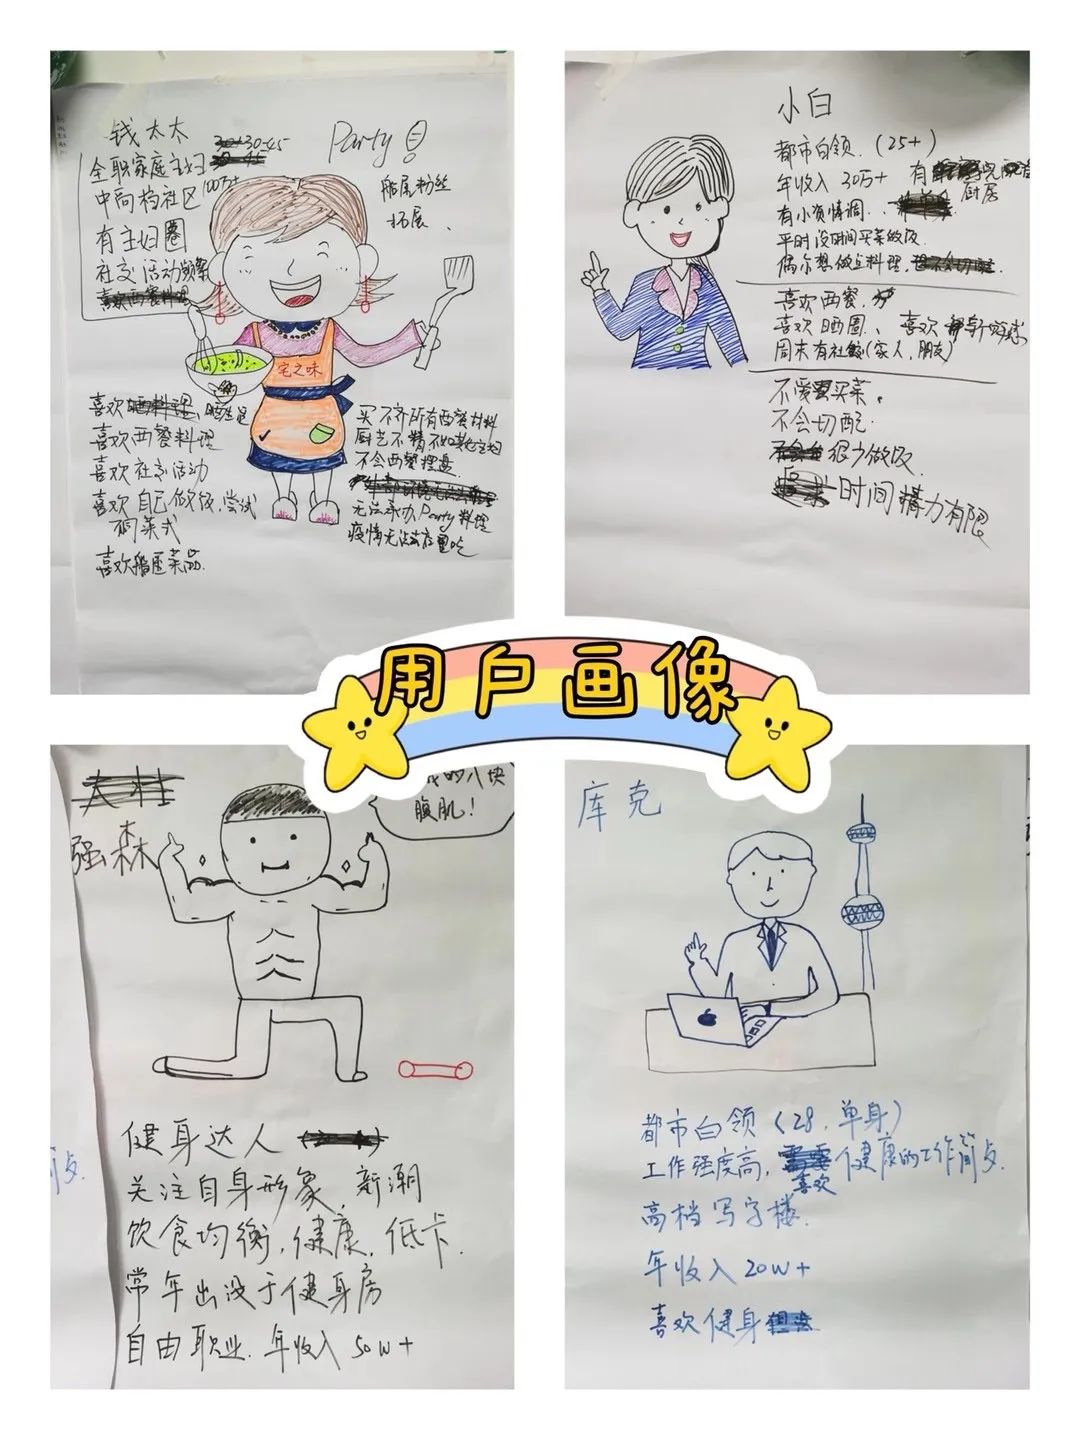 钱太太 30-45
全职家庭主妇
中高档社区 100万+
有主妇圈
社交活动频繁
喜欢西餐料理
Party!
船屋粉丝
拓展、
宅之味
喜欢
喜欢西餐料理
喜欢社交活动
喜欢自己做饭,尝试
不同菜式
喜欢船屋菜品.
买不齐所有西餐材料
厨艺不精不如其他主妇
不会西餐摆盘
无法承办Party料理
疫情无法在店里吃
小白
都市白领.(25+)
年收入 30万+ 有
厨房
有小资情调、
平时没时间买菜做饭
偶尔想做点料理,
喜欢西餐.
喜欢晒圈、喜欢
周末有社交(家人,朋友)
不爱买菜。
不会切配
很少做饭.
时间精力有限
用户画像
强森
的八块
腹肌!
健身达人
关注自身形象,新潮
饮食均衡,健康,低卡.
常年出没于健身房
自由职业.年收入50W+
库克
都市白领(28.单身)
工作强度高,喜欢健康的工作简餐.
高档写字楼.
年收入20W+
喜欢健身